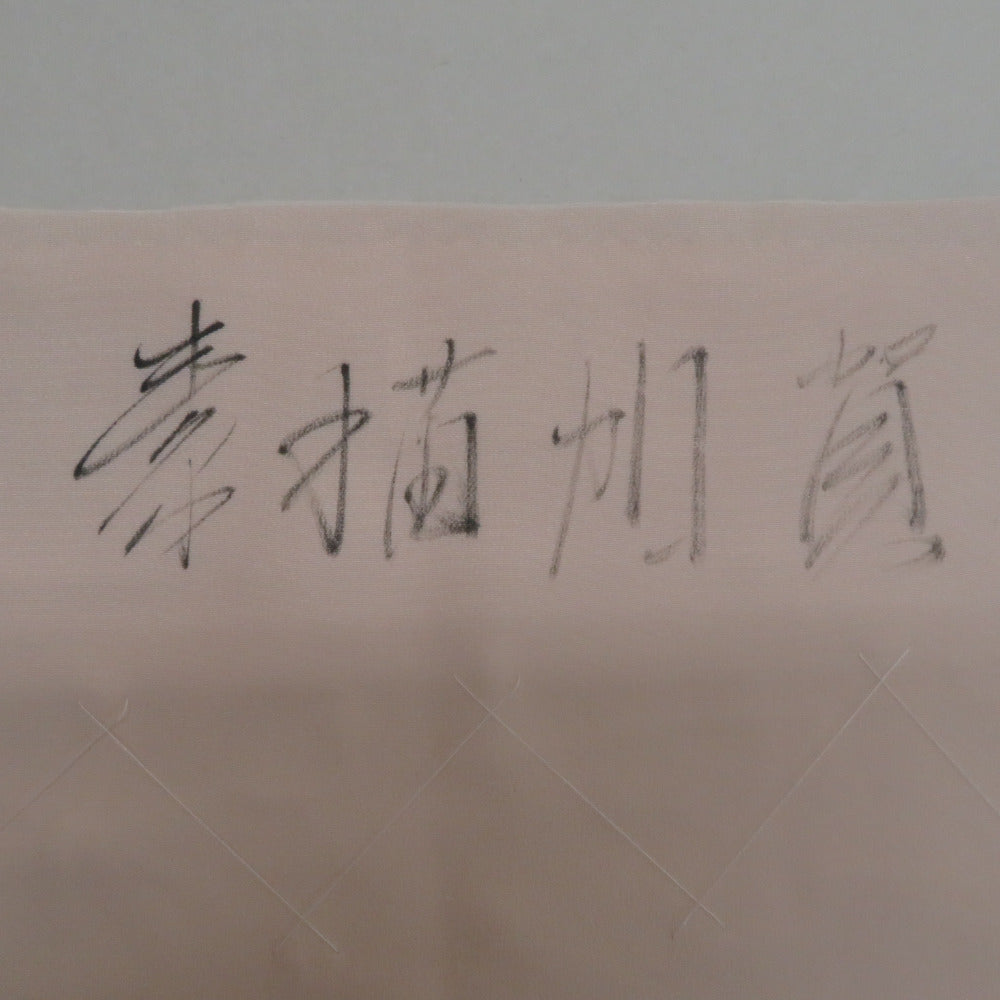 素描加賀